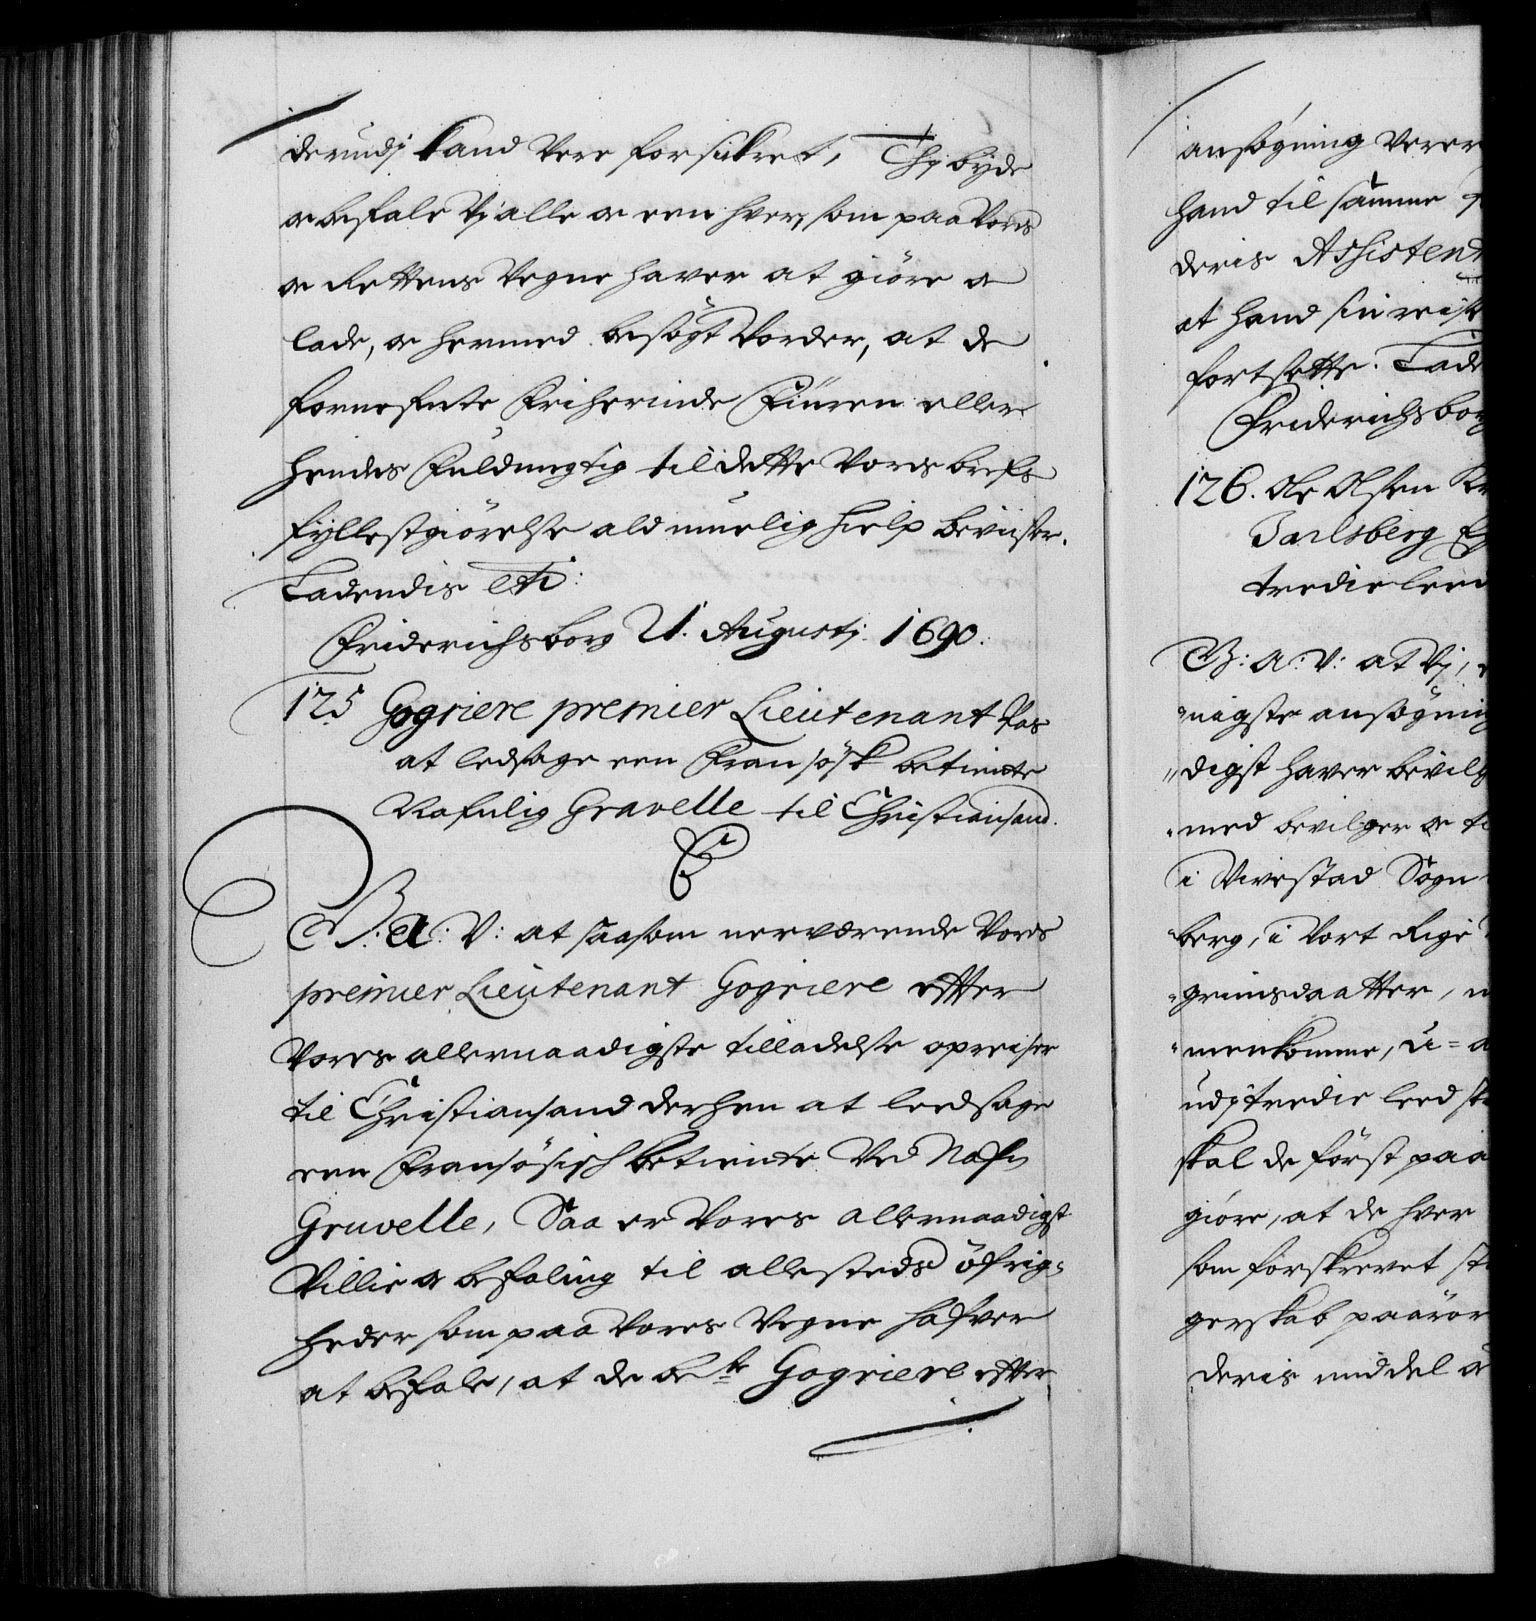 derudj kand Vere forsickret, Thj byde
oc befale Vj alle oc een hver, som paa Vores
oc Rettens Vegne haver at giöre oc
lade, oc hermed besögt Vorder, at de
fornefnte Friherinde Jüren eller
hendes Fuldmegtig til dette Vores brefs
fyllestgiörelse ald muelig hielp beviser.
Ladendis etc:
Friderichsborg 21. Augustj 1690.
125 Gogriere premier Lieutenant Pas
at ledsage een Fransösk betiente
Nafnlig Gravelle til Christiansand.
C5
G. A: V: at saasom nerværende Vores
premier Lieutenant Gogriere efter
Vores allernaadigste tilladelse opreiser
til Christiansand derhen at leedsage
een Fransösisch betiente Ved Nafn
Gruvelle, Saa er Vores allernaadigst
Villie oc befaling til allesteds öfrig=
heder som paa Vores Vegne hafver
at befale, at de be.te Gogriere efter
ansögning Verer
hand til samme
deris Assistent
at hand sin reise
fortsette. Lade
Friderichsborg
126. Ole Olsen
Jarlsberg
tredie leed
G: A: V: at Vj,
nägste ansögning
digst haver bevilg
med bevilger oc ti
i Vivestad Sogn
berg, i Vort Rige
grimsdaatter,
menkomme, U= a
udj tredie leed
skal de först paa
giöre, at de hver
som forskrevet
gerskab paarör
deris middel